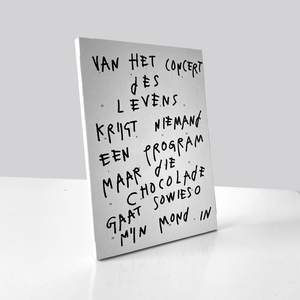 VAN HET CONCERT
DES
LEVENS
KRIJGT NIEMAND
EEN PROGRAM
MAAR DIE
CHOCOLADE
GAAT SOWIESO
MIJN MOND IN